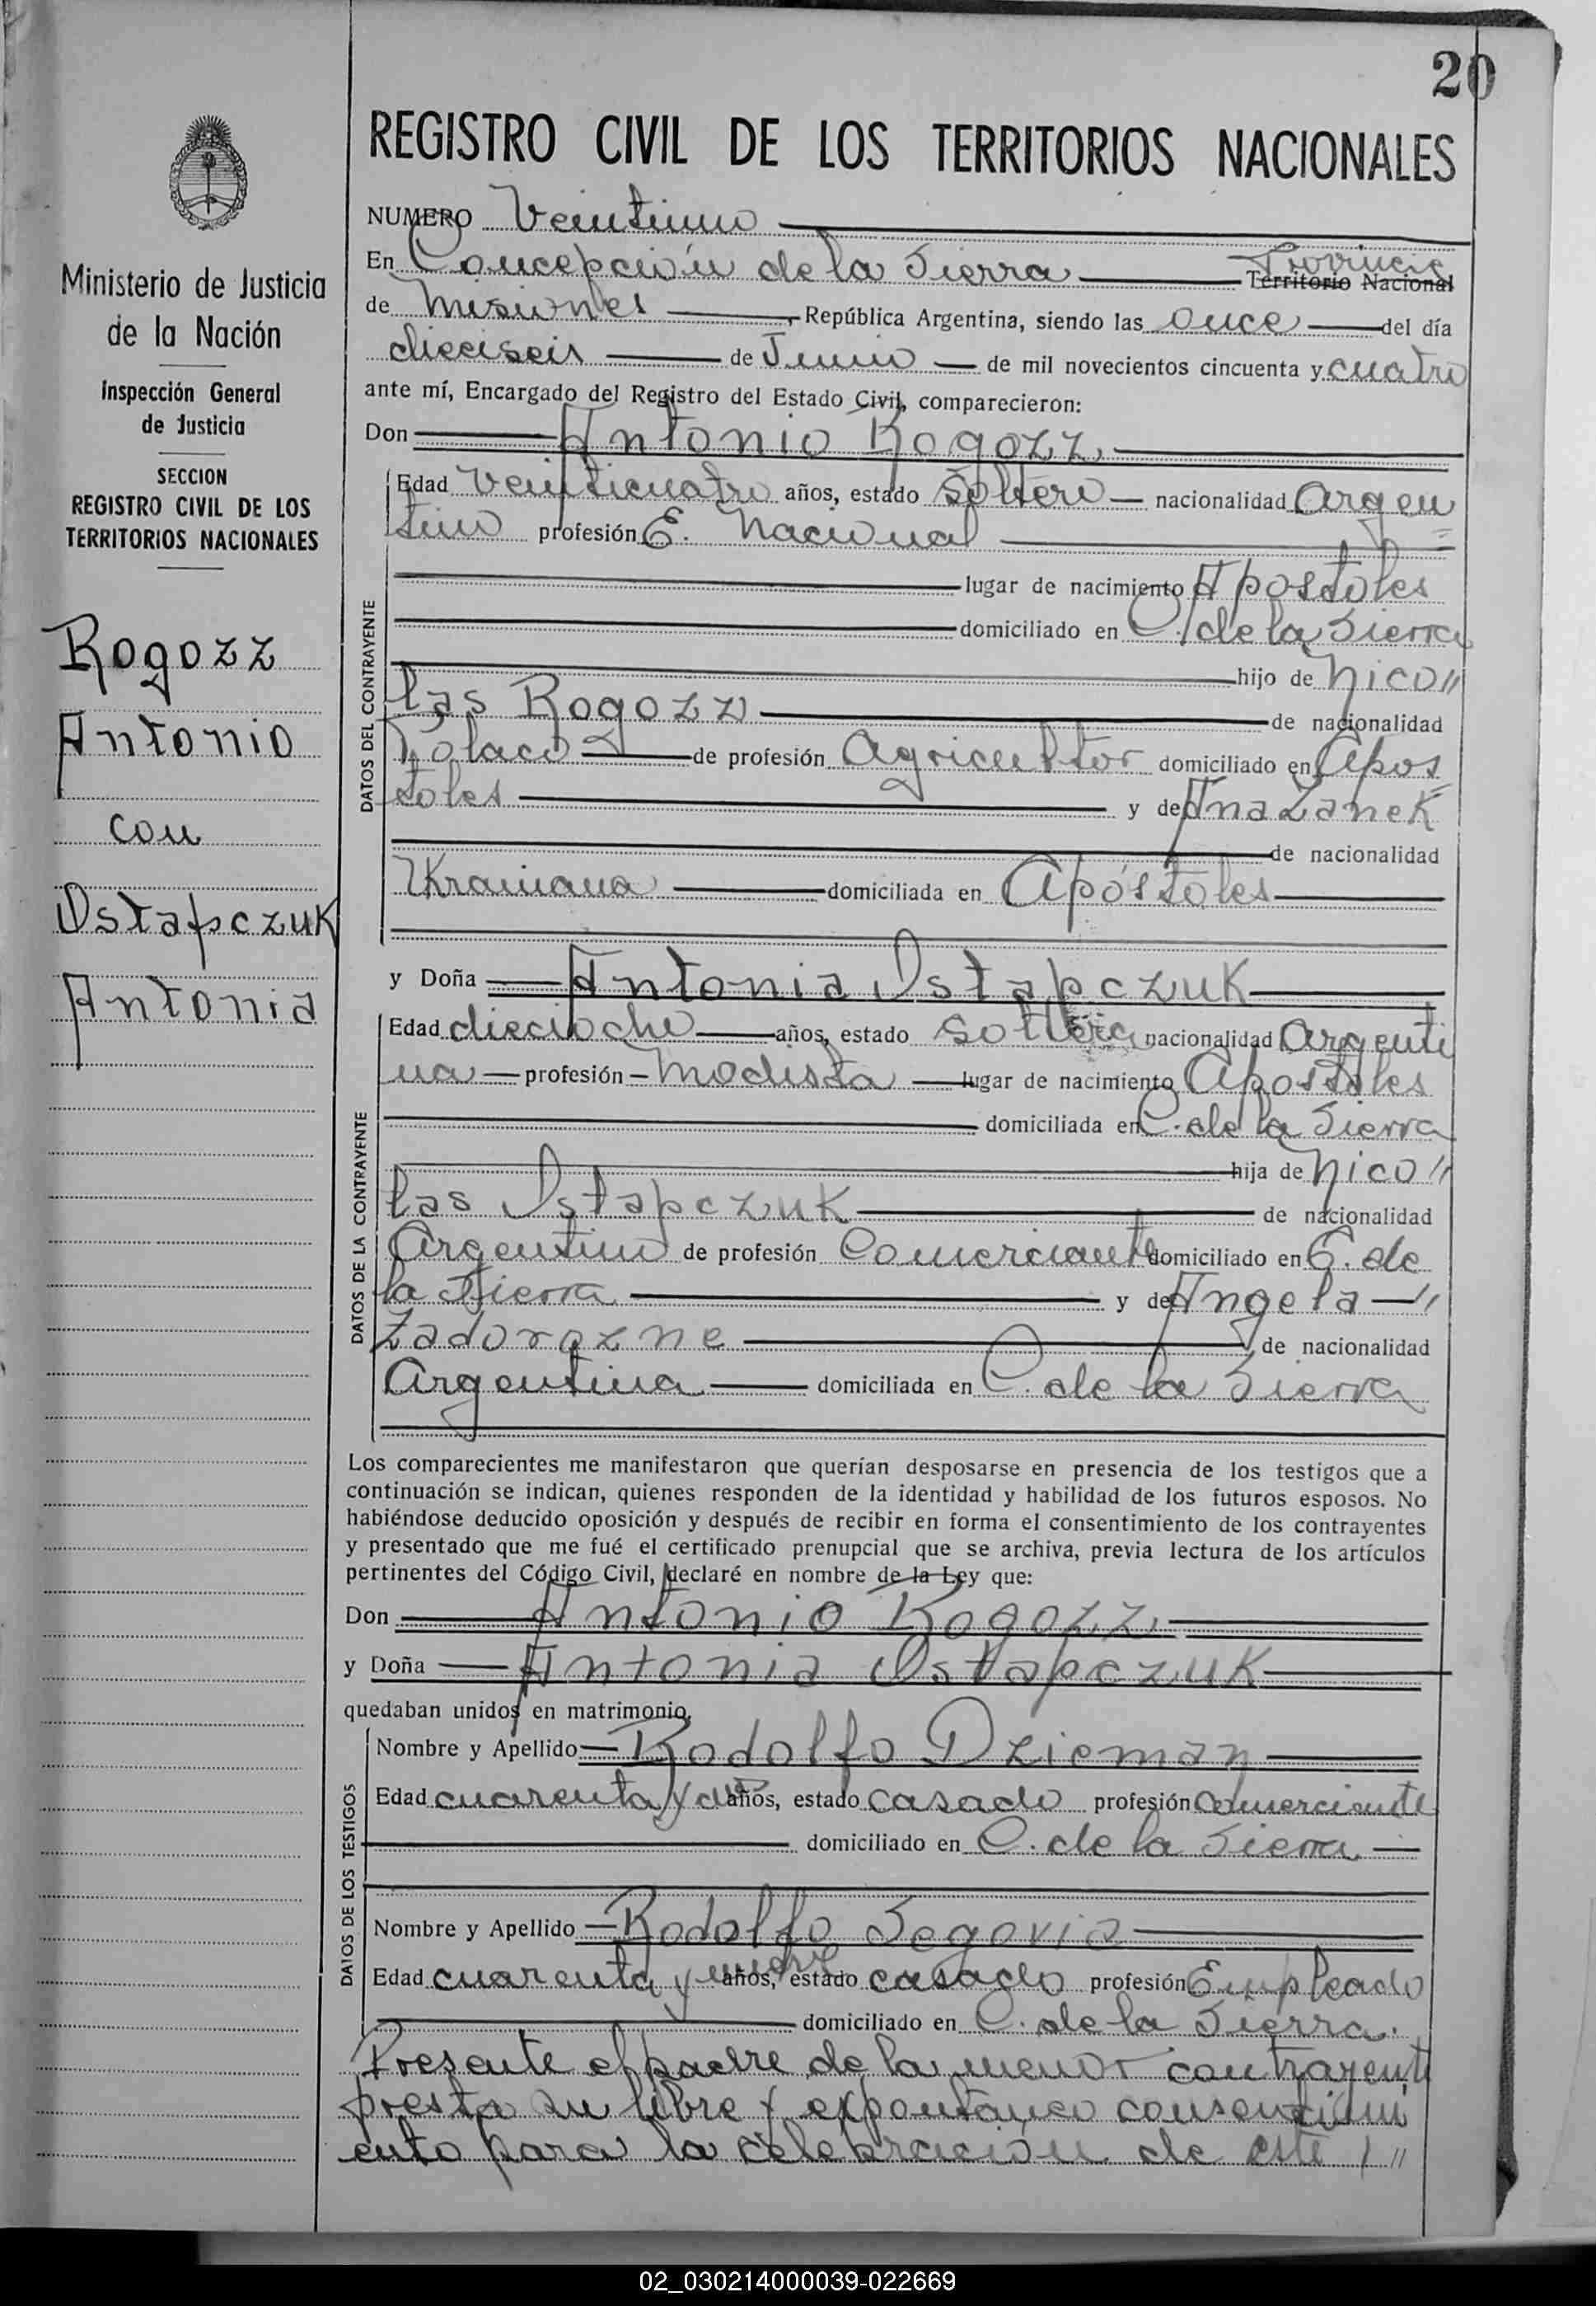 20
REGISTRO CIVIL DE LOS TERRITORIOS NACIONALES
Ministerio de Justicia
de la Nación
Inspección General
de Justicia
SECCION
REGISTRO CIVIL DE LOS
TERRITORIOS NACIONALES
Rogozz
Antonio
con
Ostapczuk
Antonia
NUMERO Veintiuno
En Concepción de la Sierra Provincia Territorio Nacional
de Misiones, República Argentina, siendo las once del día
dieciseis de Junio de mil novecientos cincuenta y cuatro
ante mí, Encargado del Registro del Estado Civil, comparecieron:
Don Antonio Rogozz
DATOS DEL CONTRAYENTE
Edad veinticuatro años, estado soltero nacionalidad Argen
tino profesión E. Nacional
lugar de nacimiento Apostoles
domiciliado en C. de la Sierra
hijo de Nico"
las Rogozz de nacionalidad
Polaco de profesión Agricultor domiciliado en Apos
toles y de Ana Zanek
de nacionalidad
Ukraniana domiciliada en Apóstoles
y Doña Antonia Ostapczuk
DATOS DE LA CONTRAYENTE
Edad dieciocho años, estado soltera nacionalidad Argenti
na profesión Modista lugar de nacimiento Apostoles
domiciliada en C. de la Sierra
hija de Nico"
las Ostapczuk de nacionalidad
Argentino de profesión Comerciante domiciliado en C. de
la Sierra y de Angela "
Zadorozne de nacionalidad
Argentina domiciliada en C. de la Sierra
Los comparecientes me manifestaron que querían desposarse en presencia de los testigos que a
continuación se indican, quienes responden de la identidad y habilidad de los futuros esposos. No
habiéndose deducido oposición y después de recibir en forma el consentimiento de los contrayentes
y presentado que me fué el certificado prenupcial que se archiva, previa lectura de los artículos
pertinentes del Código Civil, declaré en nombre de la Ley que:
Don Antonio Rogozz
y Doña Antonia Ostapczuk
quedaban unidos en matrimonio.
DATOS DE LOS TESTIGOS
Nombre y Apellido Rodolfo Dzieman
Edad cuarenta y dos años, estado casado profesión comerciante
domiciliado en C. de la Sierra
Nombre y Apellido Rodolfo Segovia
Edad cuarenta y nueve años, estado casado profesión Empleado
domiciliado en C. de la Sierra.
Presente el padre de la menor contrayente
presta su libre y expontaneo consentimi
ento para la celebración de este "
02_030214000039-022669